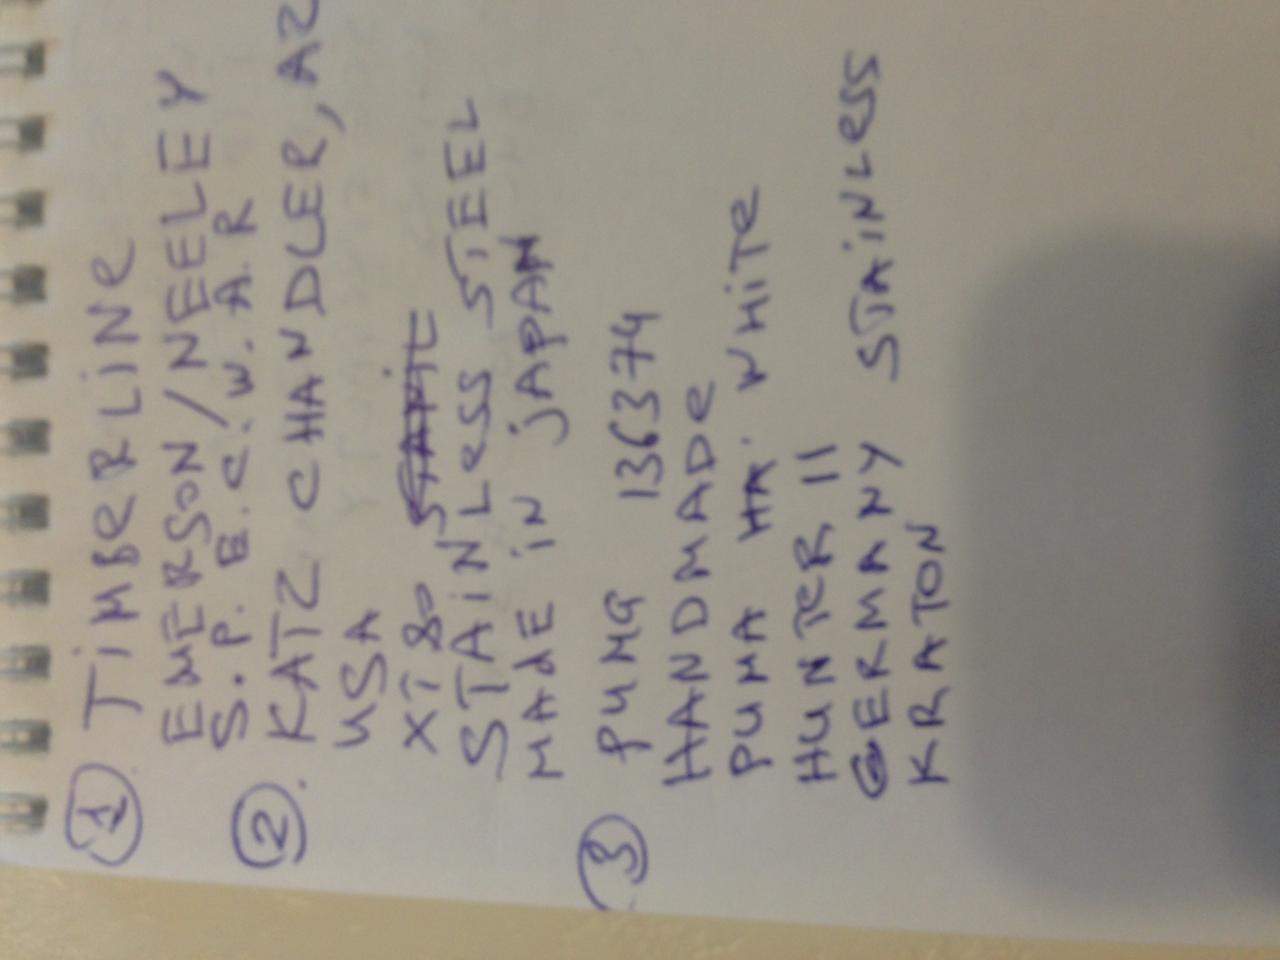 1 TiMBeRLiNe
EMERSON/NEELEY
S.P.E.C.W.A.R
2. KATZ CHANDLER, AZ
USA
XT80
STAiNLeSS STEEL
MADE iN jAPAN
3 PUMA 136374
HANDMADe
PUMA WHiTe
HUNTeR II
GERMANY STAiNLeSS
KRATON